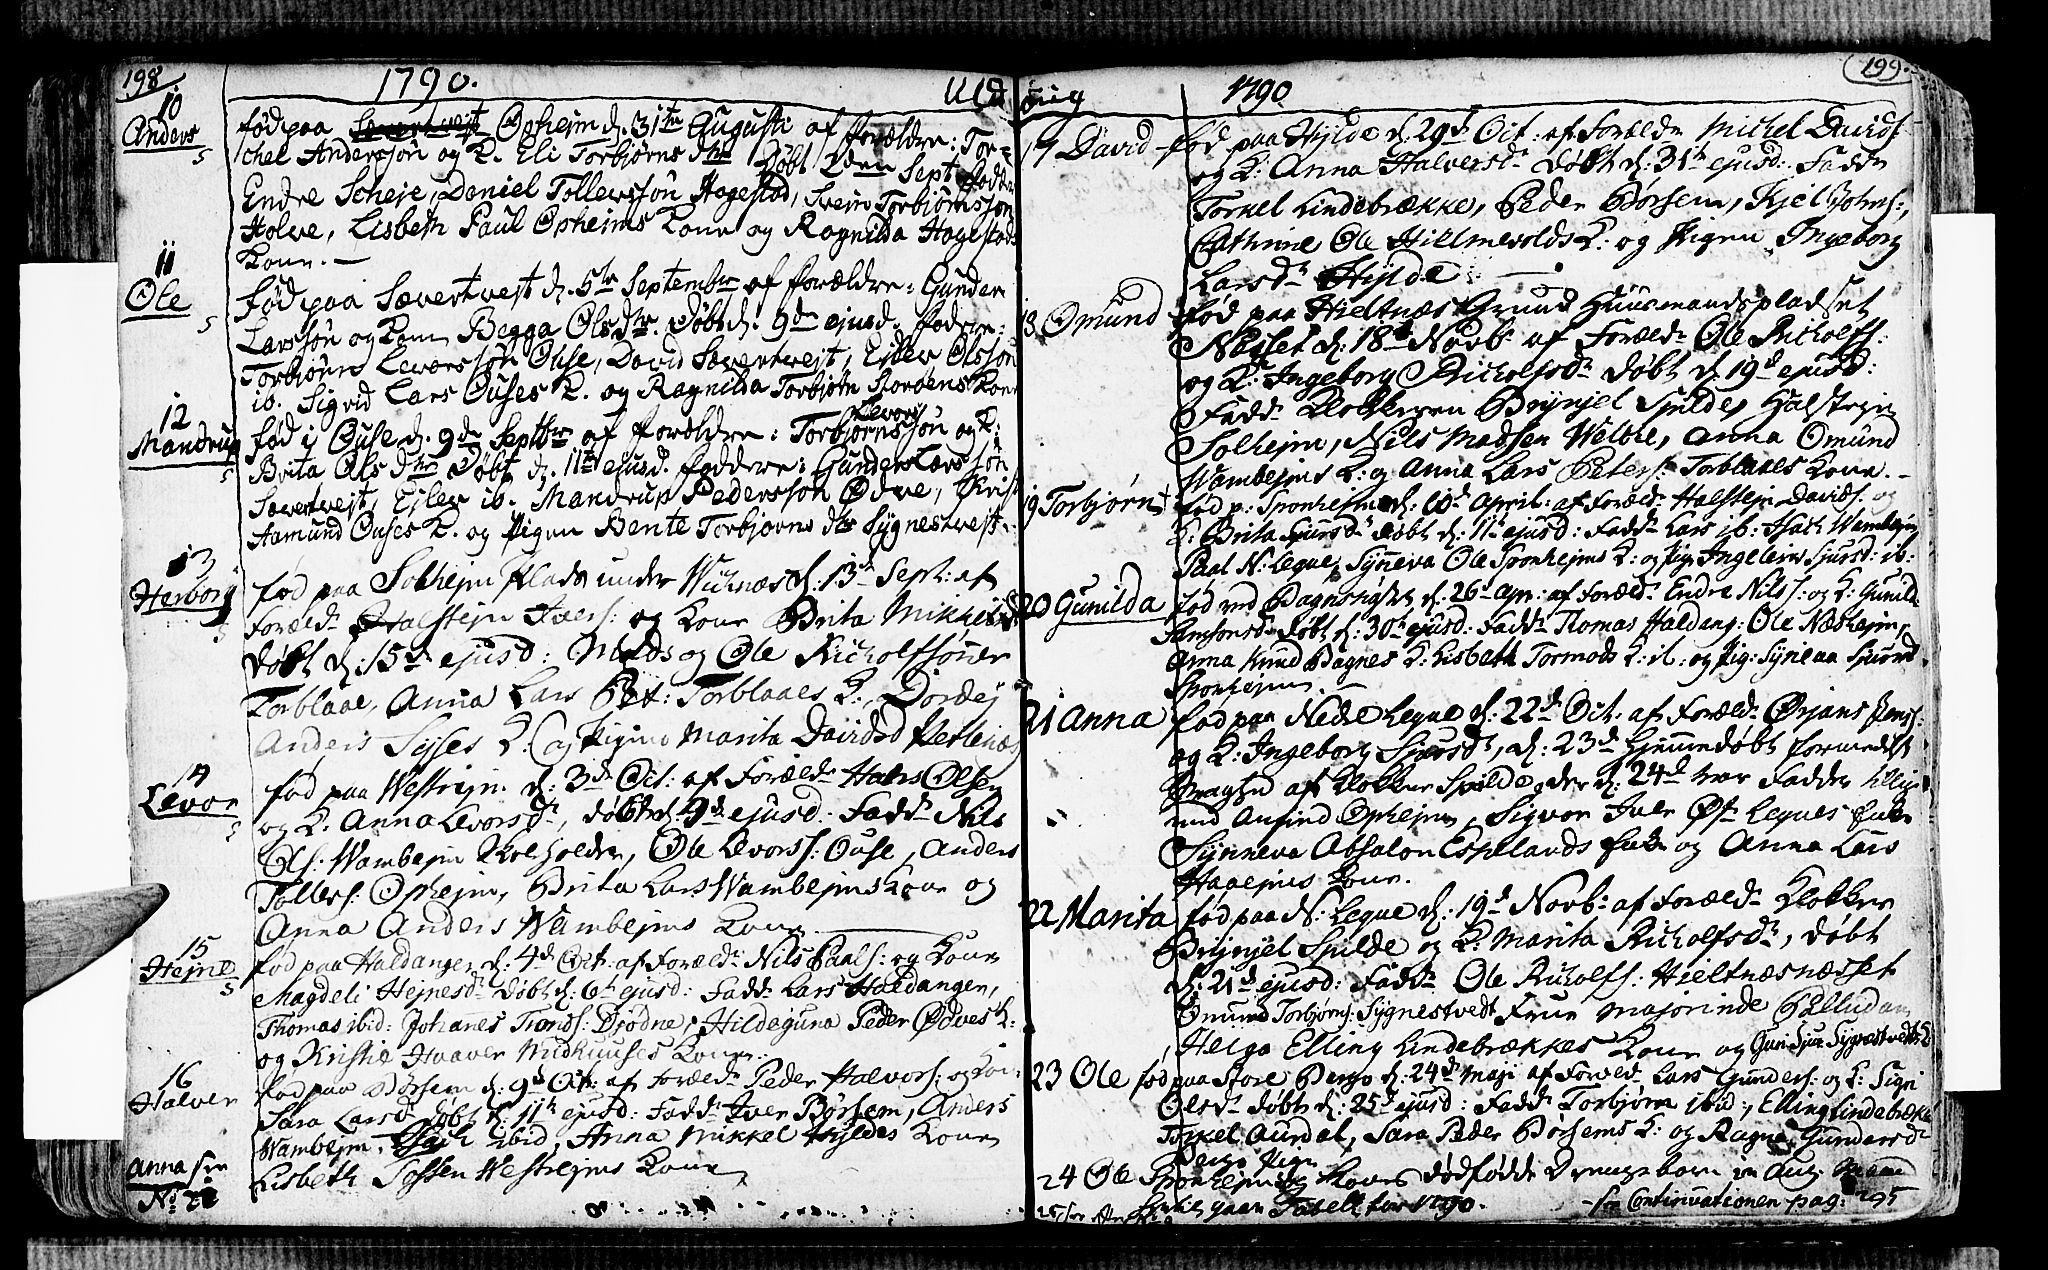 198
1790.
Ulv
10
Anders
5
fød paa Opheim d. 31te Augusti af forældre: Tor-
chel Anderssøn og K. Eli Torbjørns dtr Døbt den Sept. fadd:
Endre Scheje, Daniel Tollevssøn Hagestad, Svein Torbjørnssøn
Holve, Lisbeth Paul Opheims Kone og Ragnilda Hagestads
Kone. —
11
Ole
5
fød paa Sævertvejt d. 5te Septembr af forældre: Gunder
Larssøn og Kone Begga Olsdtr. Døbt d. 9de ejusd. faddere:
Torbiørn Levorssøn Ouse, David Sævertvejt, Eilev Olssøn
ib. Sigrid Lars Ouses K. og Ragnilda Torbiørn Kone
12
Mandrup
5
Levors
fød i Ouse d. 9de Septbr af forældre: Torbjørnssøn og K:
Brita Olsdtr Døbt d. 11te ejusd. faddere: Gunder Larssøn
Sævertvejt, Eilev ib. Mandrup Pederssøn Ødve, Kristi
Aamund Ouses K. og Pigen Bente Torbjørns dtr Sygnestvejt.
13
Herborg
fød paa Solhejm Plads under Wichnæs d. 13d Sept: af
Foræld: Halstejn Ivers: og Kone Brita Mikkelsd
døbt d. 15d ejusd: Mads og Ole Richolfsønner
Torblaae, Anna Lars Pet: Torblaaes K:, Dordej
Anders Sysses K: og Pigen Marita Davidsd Petlenæs
14
Levor
5
fød paa Westrejm d. 3d Oct: af Foræld: Hans Olsen
og K. Anna Levorsdr, døbt d. 9d ejusd. Fadd: Nils
Ols: Wambejm Skoleholder, Ole Levorss: Ouse, Anders
Tollefs: Ophejm, Brita Lars Wambejms Kone og
Anna Anders Wambejms Kone.
15
Hejne
5
fød paa Haldanger d: 4d Oct: af Foræld: Nils Paals: og Kone
Magdeli Hejnesd: døbt d: 6t ejusd: Fadd: Lars Haldanger,
Thomas ibid: Johannes Tronds: Djødne, Hildeguna Peder Ødves K:
og Kristie Haaver Midhuuses Kone.
16
Halver
fød paa Børsem d: 9d Oct: af Foræld: Peder Halvors: og Ko:
Sara Larsd: døbt d: 11te ejusd: Fadd: Iver Børsem, Anders
Wambejm, Isach ibid, Anna Mikkel Hyldes Kone
Lisbeth Tosten Westrejms Kone
Anna see
No 21
199.
vig
1790
17 David
fød paa Hylde d. 29d Oct: af Foræld: Michel Davids:
og K: Anna Halversd: døbt d: 31te ejusd: Fadd:
Torkel Lindebrække, Peder Børsem, Kjel Johns:,
Cathrine Ole Hillmevolds K: og Pigen Ingeborg
Larsd: Hylde
18 Omund
fød paa Hieltnæs Grund Huusmandspladset
Næsset d: 18d Novb: af Foræld: Ole Richolfs:
og K: Ingeborg Richolfsd: døbt d: 19d ejusd:
Fadd: Klokkeren Brynjel Spilde, Halstejn
Solhejm, Nils Madsen Welure, Anna Omund
Wambejms K: og Anna Lars Peters: Torblaaes Kone. —
19 Torbjørn
fød p: Sponhejm d: 10d April: af Foræld: Halstejn Davids: og
K: Brita Sjursd: døbt d: 11te ejusd: Fadd: Lars ib: Isach Wambejm
Paal N: Legue, Synneva Ole Sponhejms K: og Pig: Ingelev Sjursd: ib:
20 Gunilda
fød ved d: 26d Apr: af Foræld: Endre Nils: og K: Gunild
Samsonsd: døbt d: 30t ejusd: Fadd: Thomas Haldang: Ole Næshejm,
Anna Knud Bagnes K: Lisbeth Tormods K: ib: og Pig: Synneva Sjursd
Sponhejm.
21 Anna
fød paa Nedre Legue d: 22d Oct: af Foræld: Ørjans Jens:
og K: Ingeborg Sjursd:, d: 23d hjemmedøbt formedelst
Svaghed af Klokker Spilde, der d: 24d var Fadder tillige
med Amund Ophejm, Sigvor Iver Øfr Legues
Synneva Absalon Espelands og Anna Lars
Haaejms Kone.
22 Marita
fød paa N: Legue d: 19d Novb: af Foræld: Klokker
Brynjel Spilde og K: Marita Richolfsd:, døbt
d: 21d ejusd: Fadd: Ole Richolfs: Hieltnæsnæsset
Omund Torbjørns: Sygnestvedt Frue Majorinde Palludan
Helga Elling Lindebrækkes Kone og Sygnestvedts
23 Ole
fød paa Store Berge d: 24d Maji af Foræld: Lars Gunders: og K: Sigri
Olsd: døbt d: 25d ejusd: Fadd: Torbjørn ibid:, Elling Lindebrække
Torkel Aurdal, Sara Peder Børsems K: og Ragna Gundersd:
Berge Pige
24 Ole Sponhejms Kones dødfødde Drengebarn
Tabell for 1790. — see Continuationen pag: 295